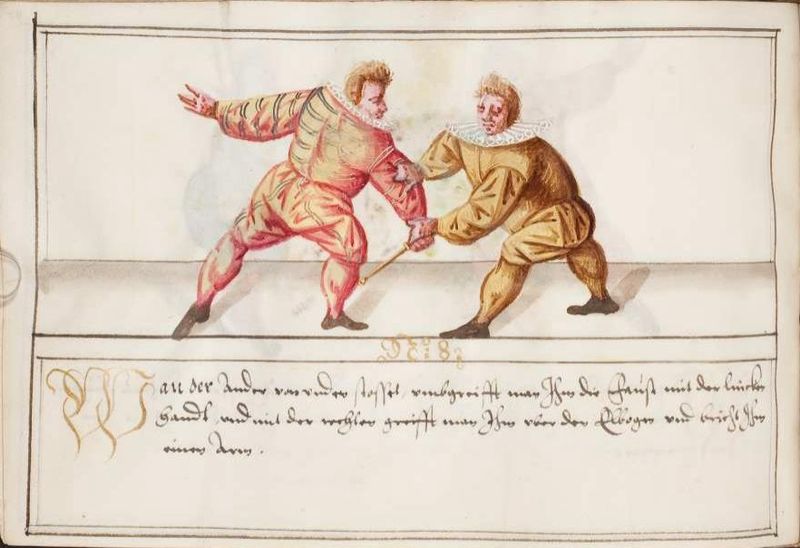 No. 8.
Wan der Ander von unden stosset, umbgreifft man Ihm die Faust mit der lincken
handt, und mit der rechten greifft man Ihm uber den Elbogen und bricht Ihm
einen Arm.